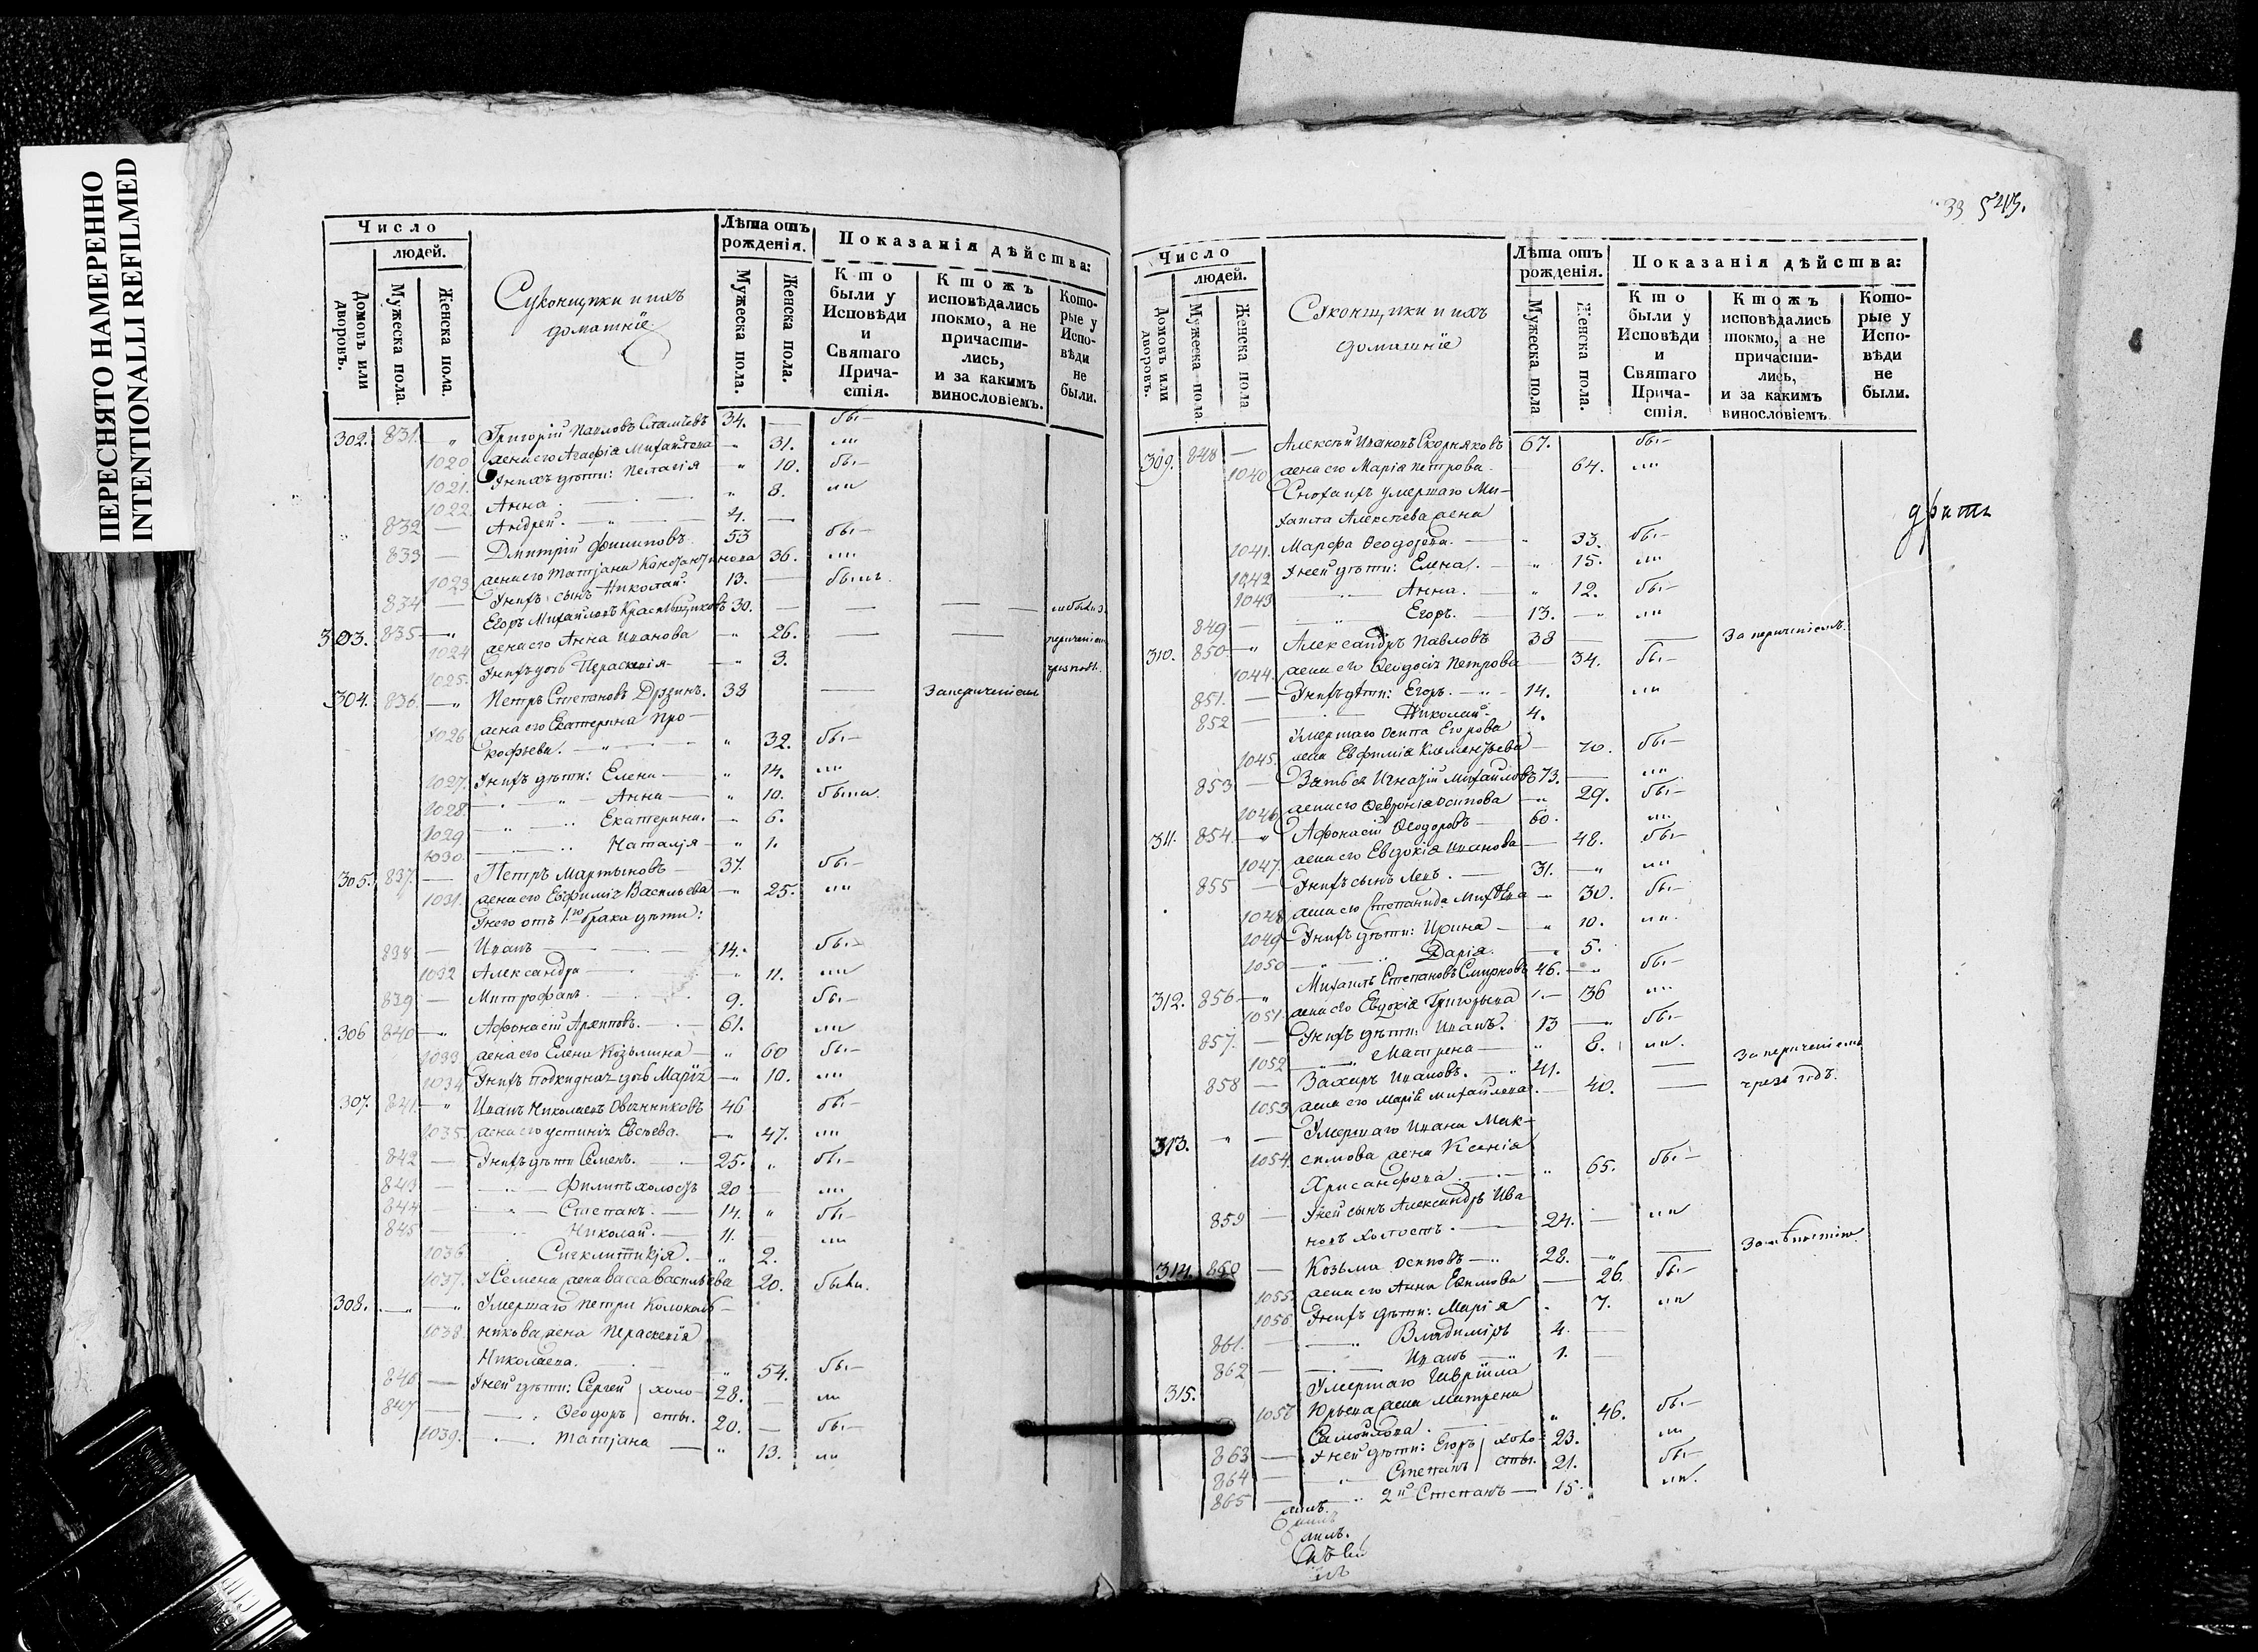 ПЕРЕСНЯТО НАМЕРЕННО
INTENTIONALLI REFILMED
Число
людей.
Домовъ или дворовъ.
Мужеска пола.
Женска пола.
Суконщики и ихъ
домашніе
Лѣта отъ рожденія.
Мужеска пола.
Женска пола.
Показанія дѣйства:
Кто были у Исповѣди и Святаго Прича-стія.
Ктожъ исповѣдались токмо, а не причасти-лись, и за какимъ винословіемъ.
Кото-рые у Испо-вѣди не были.
302. 831. „ Григорій Павловъ 34. — бы—
1020 жена его Агафія Михайлова „ 31. ли
1021. У нихъ дѣти: Пелагія „ 10. бы—
1022. Анна „ 8. ли
832 — Андрей. 4. —
833 — Дмитрій Филиповъ. 53 бы—
1023 жена его Татіана 36. ли
834 — У нихъ сынъ Николай. 13. — были.
303. 835 — „ Егоръ Михайловъ 30. — — — небыли
1024 жена его Анна Иванова „ 26. — —
1025. У нихъ дочь Параскевія „ 3.
304. 836. — „ Петръ Степановъ 38 — За переченіемъ
1026 жена его Екатерина Про-
кофьева. „ 32. бы—
1027. У нихъ дѣти: Елена „ 14. ли
1028. Анна „ 10. были.
1029 Екатерина. „ 6.
1030. Наталія „ 1.
305. 837. — Петръ Мартыновъ 37. бы—
1031. жена его Евфимія Васильева „ 25. ли
У него отъ 1го брака дѣти:
838 — Иванъ 14. бы—
1032 Александра „ 11. ли
839 — Митрофанъ. 9. бы—
306 840 — „ Афонасій Архиповъ. 61. ли
1033 жена его Елена Козьмина „ 60 бы—
1034 У нихъ подкидная дочь Марія „ 10. ли
307. 841. — „ Иванъ Николаевъ Овчинниковъ 46 бы—
1035 жена его Устинія Евсѣева. „ 47. ли
842 — У нихъ дѣти Семенъ. 25. „ бы—
843 — Филипъ холостъ 20 — ли
844 — Степанъ. 14. „ бы—
845 Николай. 11. — ли
1036 Сигклитикія. „ 2.
1037. У Семена жена Васса Васильева 20. были.
308. — „ Умершаго Петра Колоколь-
1038. никова жена Параскевія
Николаева. „ 54. бы—
846 — У ней дѣти: Сергей холо- 28. — ли
847 — Ѳеодоръ сты. 20. — бы—
1039. Татіана „ 13. ли
33 545.
Число
людей.
Домовъ или дворовъ.
Мужеска пола.
Женска пола
Суконщики и ихъ
домашніе
Лѣта отъ рожденія.
Мужеска пола
Женска пола.
Показанія дѣйства:
Кто были у Исповѣди и Святаго Прича-стія.
Ктожъ исповѣдались токмо, а не причасти-лись, и за какимъ винословіемъ
Кото-рые у Испо-вѣди не были.
309. 848 — Алексѣй Ивановъ Скорняковъ 67. бы—
1040 жена его Марія Петрова 64. ли
Сноха ихъ умершаго Ми-
хаила Алексѣева жена
1041. Марфа Ѳеодорова. „ 33. бы—
1042 У ней дѣти: Елена. „ 15. ли
1043 Анна. „ 12. бы—
849 — Егоръ. 13. — „ ли
310. 850 — „ Александръ Павловъ 38 — — За переченіемъ.
1044. жена его Ѳеодосія Петрова 34. бы—
851. — У нихъ дѣти: Егоръ. 14. ли
852 — Николай. 4.
Умершаго Осипа Егорова
1045. жена Евфимія Климентьева 70. бы—
853 — Зять ея Игнатій Михайловъ 73. — ли
1046 жена его Ѳевронія Осипова „ 29. бы—
311. 854. — „ Афонасій Ѳеодоровъ 60. ли
1047. жена его Евдокія Иванова — 48. бы—
855 — У нихъ сынъ Левъ. 31. — „ ли
1048 жена его Степанида — 30. бы—
1049 У нихъ дѣти: Ирина „ 10. ли.
1050 Дарія. „ 5.
312. 856 — „ Михаилъ Степановъ Смирновъ 46. — „ бы—
1051. жена его Евдокія Григорьева 36 ли
857. — У нихъ дѣти: Иванъ. 13 — „ бы—
1052 Матрена „ 8. ли.
858 — Захаръ Ивановъ. 41. — За переченіемъ
1053 жена его Марія Михайлова. 40. — чрезъ годъ.
313. „ — Умершаго Ивана Мак-
1054. симова жена Ксенія
Хрисанфова „ 65. бы—
859 — У ней сынъ Александръ Ива-
новъ холостъ. 24. — ли
314. 860 — Козьма Осиповъ 28. „ —
1055. жена его Анна Ефимова — 26. бы—
1056 У нихъ дѣти: Марія 7. ли
861. — Владиміръ 4. —
862 — Иванъ 1. —
315. Умершаго Гавріила
1057 Юрьева жена Матрена
Самойлова. „ 46. бы—
863 — У ней дѣти: Егоръ холо- 23. ли
864 — Степанъ сты. 21. бы—
865 — 2й Степанъ 15. ли.